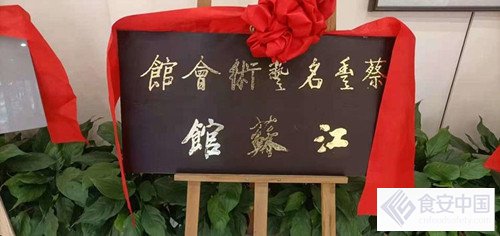 蔡豐名藝術會館
江蘇館
食安中国
cnfoodsafety.com